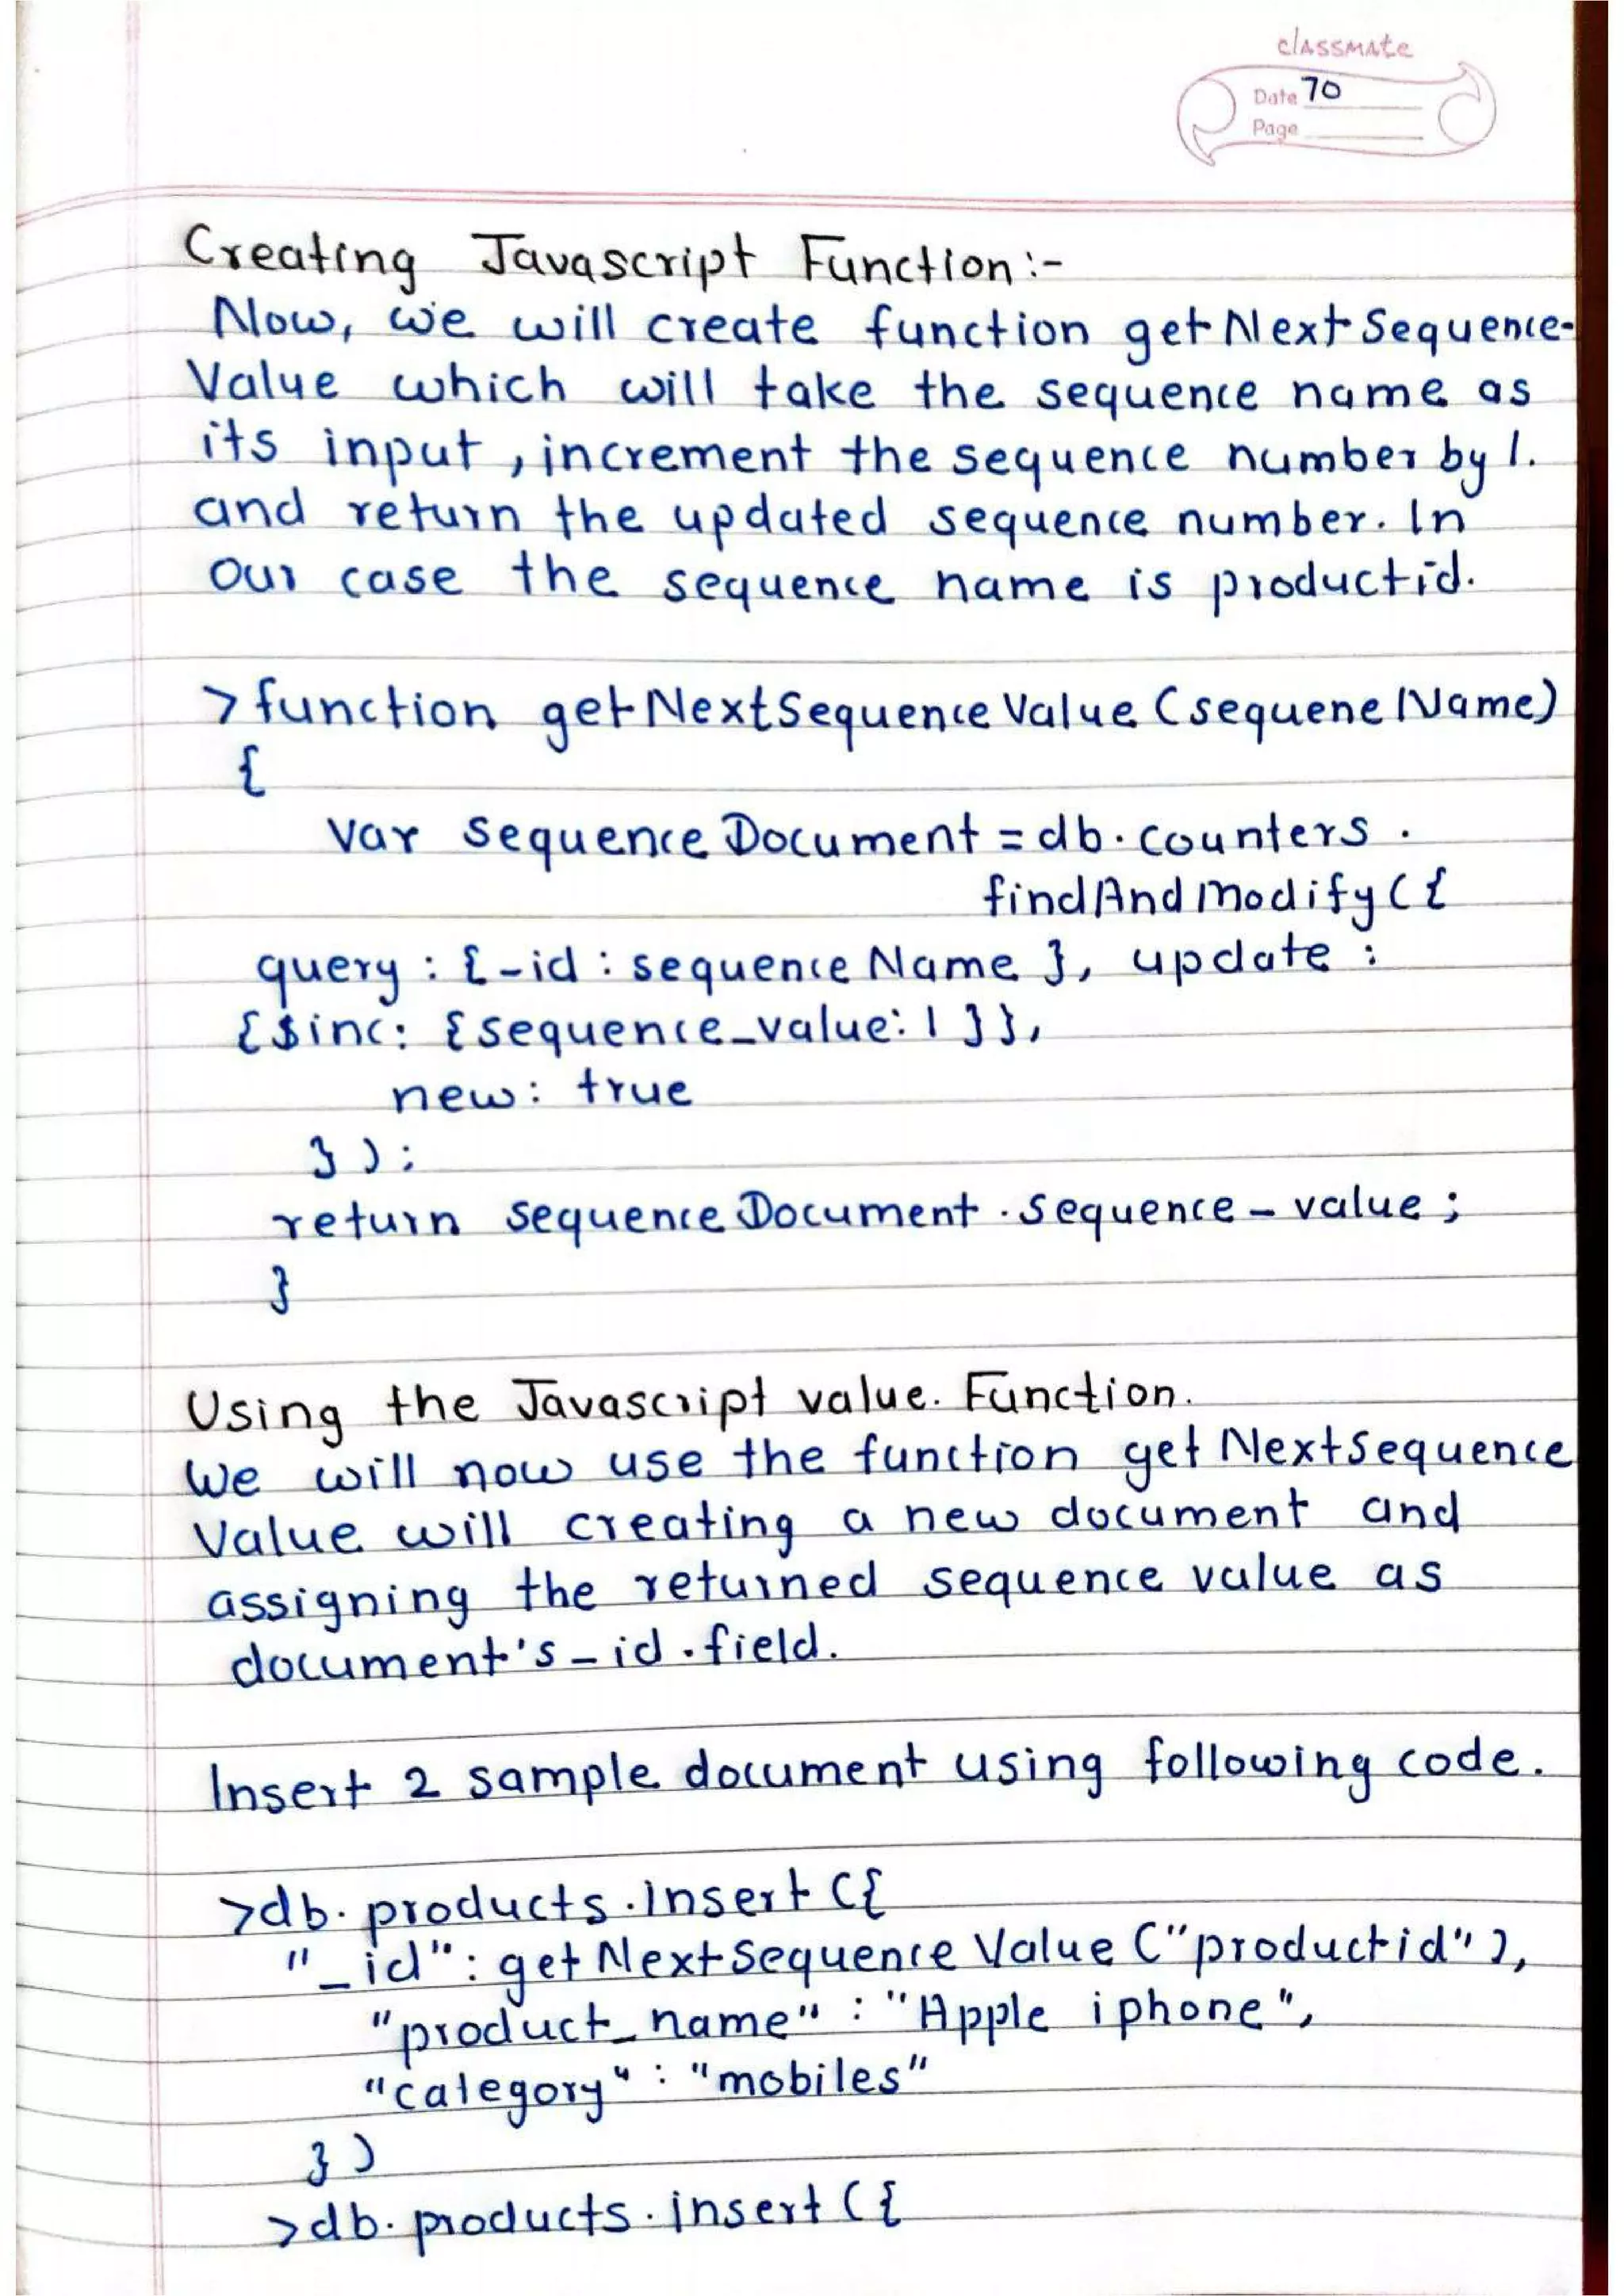 classmate
Date 70
Page
Creating Javascript Function :-
Now, we will create function getNextSequence-
Value which will take the sequence name as
its input, increment the sequence number by 1.
and return the updated sequence number. In
our case the sequence name is productid.
> function getNextSequenceValue (sequeneName)
{
var sequenceDocument = db.counters.
findAndModify({
query : {_id : sequenceName }, update :
{$inc: {sequence_value: 1 }},
new: true
});
return sequenceDocument.sequence_value;
}
Using the Javascript value. Function.
We will now use the function getNextSequence
Value will creating a new document and
assigning the returned sequence value as
document's _id.field.
Insert 2 sample document using following code.
>db.products.Insert ({
"_id" : getNextSequenceValue ("productid"),
"product_name" : "Apple iphone",
"category" : "mobiles"
})
>db.products.insert ({